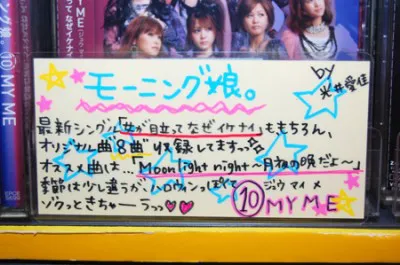 モーニング娘。
by 光井愛佳
最新シングル「女が目立ってなぜイケナイ」ももちろん、
オリジナル曲8曲収録してます〜☆
オススメ曲は…「Moonlight night〜月夜の晩だよ〜」
季節は少し違うが、ハロウィンっぽくて
ゾクっときちゃーうっっ♥♥
ジュウ マイ メ
⑩MY ME
MY ME
⑩MY ME